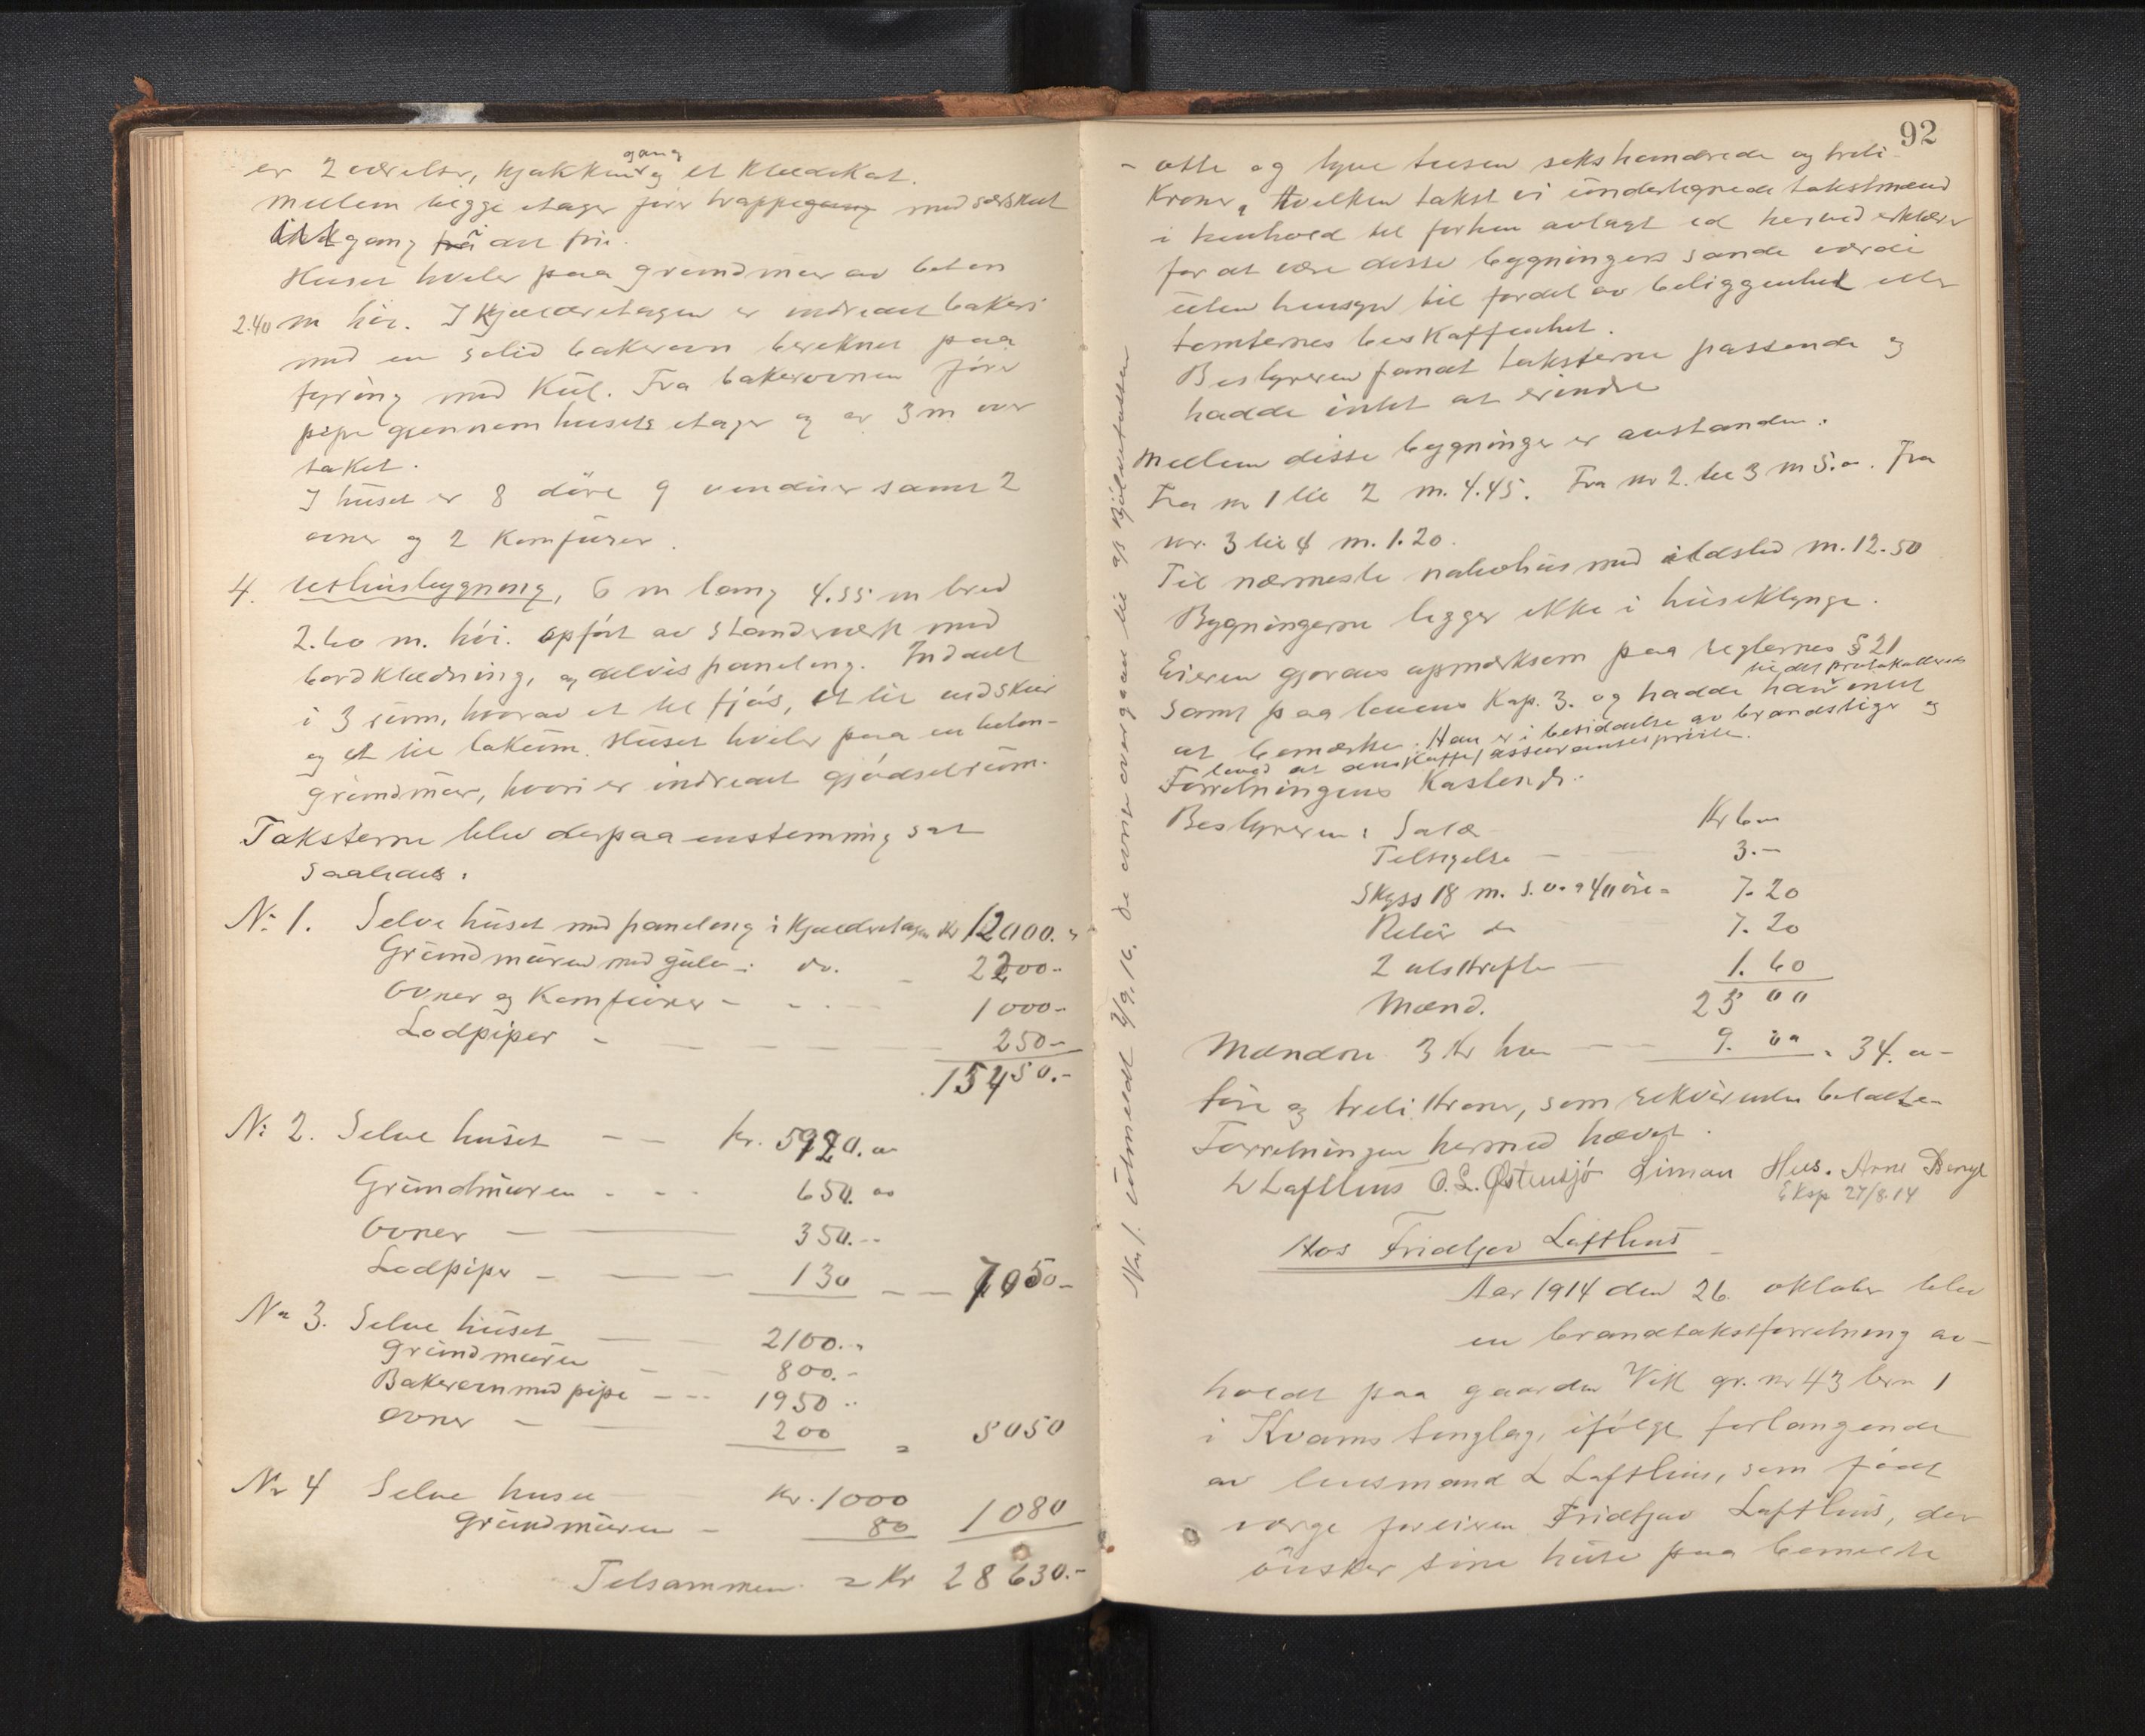 er 2 værelser, kjøkken gang og et klædekot.
Mellem begge etager fører trappegang med særskilt
indgang i det fri.
Huset hviler paa grundmur av beton
2.40 m høi. I kjælderetagen er indredet bakeri
med en solid bakerovn bereknet paa
fyring med kul. Fra bakerovnen fører
pipe gjennem husets etager og er 3 m over
taket.
I huset er 8 døre 9 vinduer samt 2
ovner og 2 komfurer.
4. Uthusbygning, 6 m lang 4.55 m bred
2.60 m. høi. opført av standerverk med
bordklædning, og delvis paneling. Inddelt
i 3 rum, hvorav et til fjøs, et til vedskur
og et til lokum. Huset hviler paa en beton-
grundmur, hvori er indredet gjødselrum.
Taksterne blev derpaa enstemmig sat
saaledes:
No 1. Selve huset med paneling i kjælderetagen kr 12000.-
Grundmuren med gulv i do. - 2200.-
Ovner og komfurer - - 1000-
Lodpiper - 250-
15450.-
No 2. Selve huset - - kr. 5920.00
Grundmuren - - 650.00
Ovner - 350.--
Lodpiper - 130 - - 7050-
No 3. Selve huset 2100.-
Grundmuren 800.-
Bakerovn med pipe - 1950 -
Ovner - 200 = 5050
No 4 Selve huset kr. 1000
Grundmuren - 80 1080
Tilsammen = Kr 28630.-
92
- otte og tyve tusen sekshundrede og treti
kroner, hvilken takst vi undertegnede takstmænd
i henhold til forhen avlagt ed herved erklærer
for at være disse bygningers sande værdi
uten hensyn til fordel av beliggenhet eller
tomternes beskaffenhet.
Bestyreren fandt taksterne passende og
hadde intet at erindre
Mellem disse bygninger er avstanden:
Fra nr 1 til 2 m. 4.45. Fra nr 2. til 3 m 5.00. Fra
nr. 3 til 4 m. 1.20.
Til nærmeste nabohus med ildsted m. 12.50
Bygningerne ligger ikke i huseklynge.
Eieren gjordes opmerksom paa reglernes § 21
samt paa lovens Kap. 3. og hadde han intet til det protokollerede
at bemerke. Han er i besiddelse av brandstiger og
lovet at anskaffe assuransesprøite.
Forretningens kostende:
Bestyreren: Salær Kr 6.00
Tilsigelse - 3.-
Skyss 18 m. s.v. a 40 øre = 7.20
Retur do 7.20
2 utskrifter - 1.60
Mænd. 25 00
Mændene 3 kr hver - 9.00 = 34.00-
fire og treti kroner, som rekvirenten betalte-
Forretningen hermed hævet.
L Lofthus O. L. Østensjø Simon Hus. Arne Berge
Eksp 27/8.14
Hos Fridtjov Lofthus
Aar 1914 den 26. oktober blev
en brandtakstforretning av-
holdt paa gaarden Vik gr. nr 43 brn 1
i Kvams tinglag, ifølge forlangende
av lensmand L Lofthus, som født
verge for eieren Fridtjov Lofthus, der
ønsker sine huse paa bemeldte
Nr 1. utmeldt 2/9.16. da